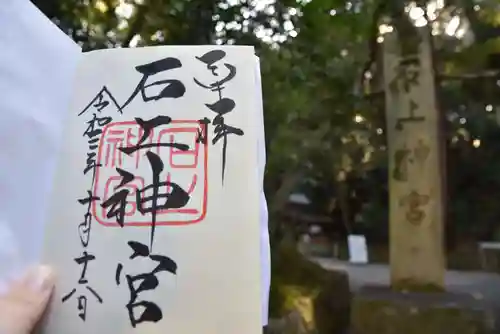 石上神宮
奉拝
石上神宮
石上神宮
令和二年十一月十八日